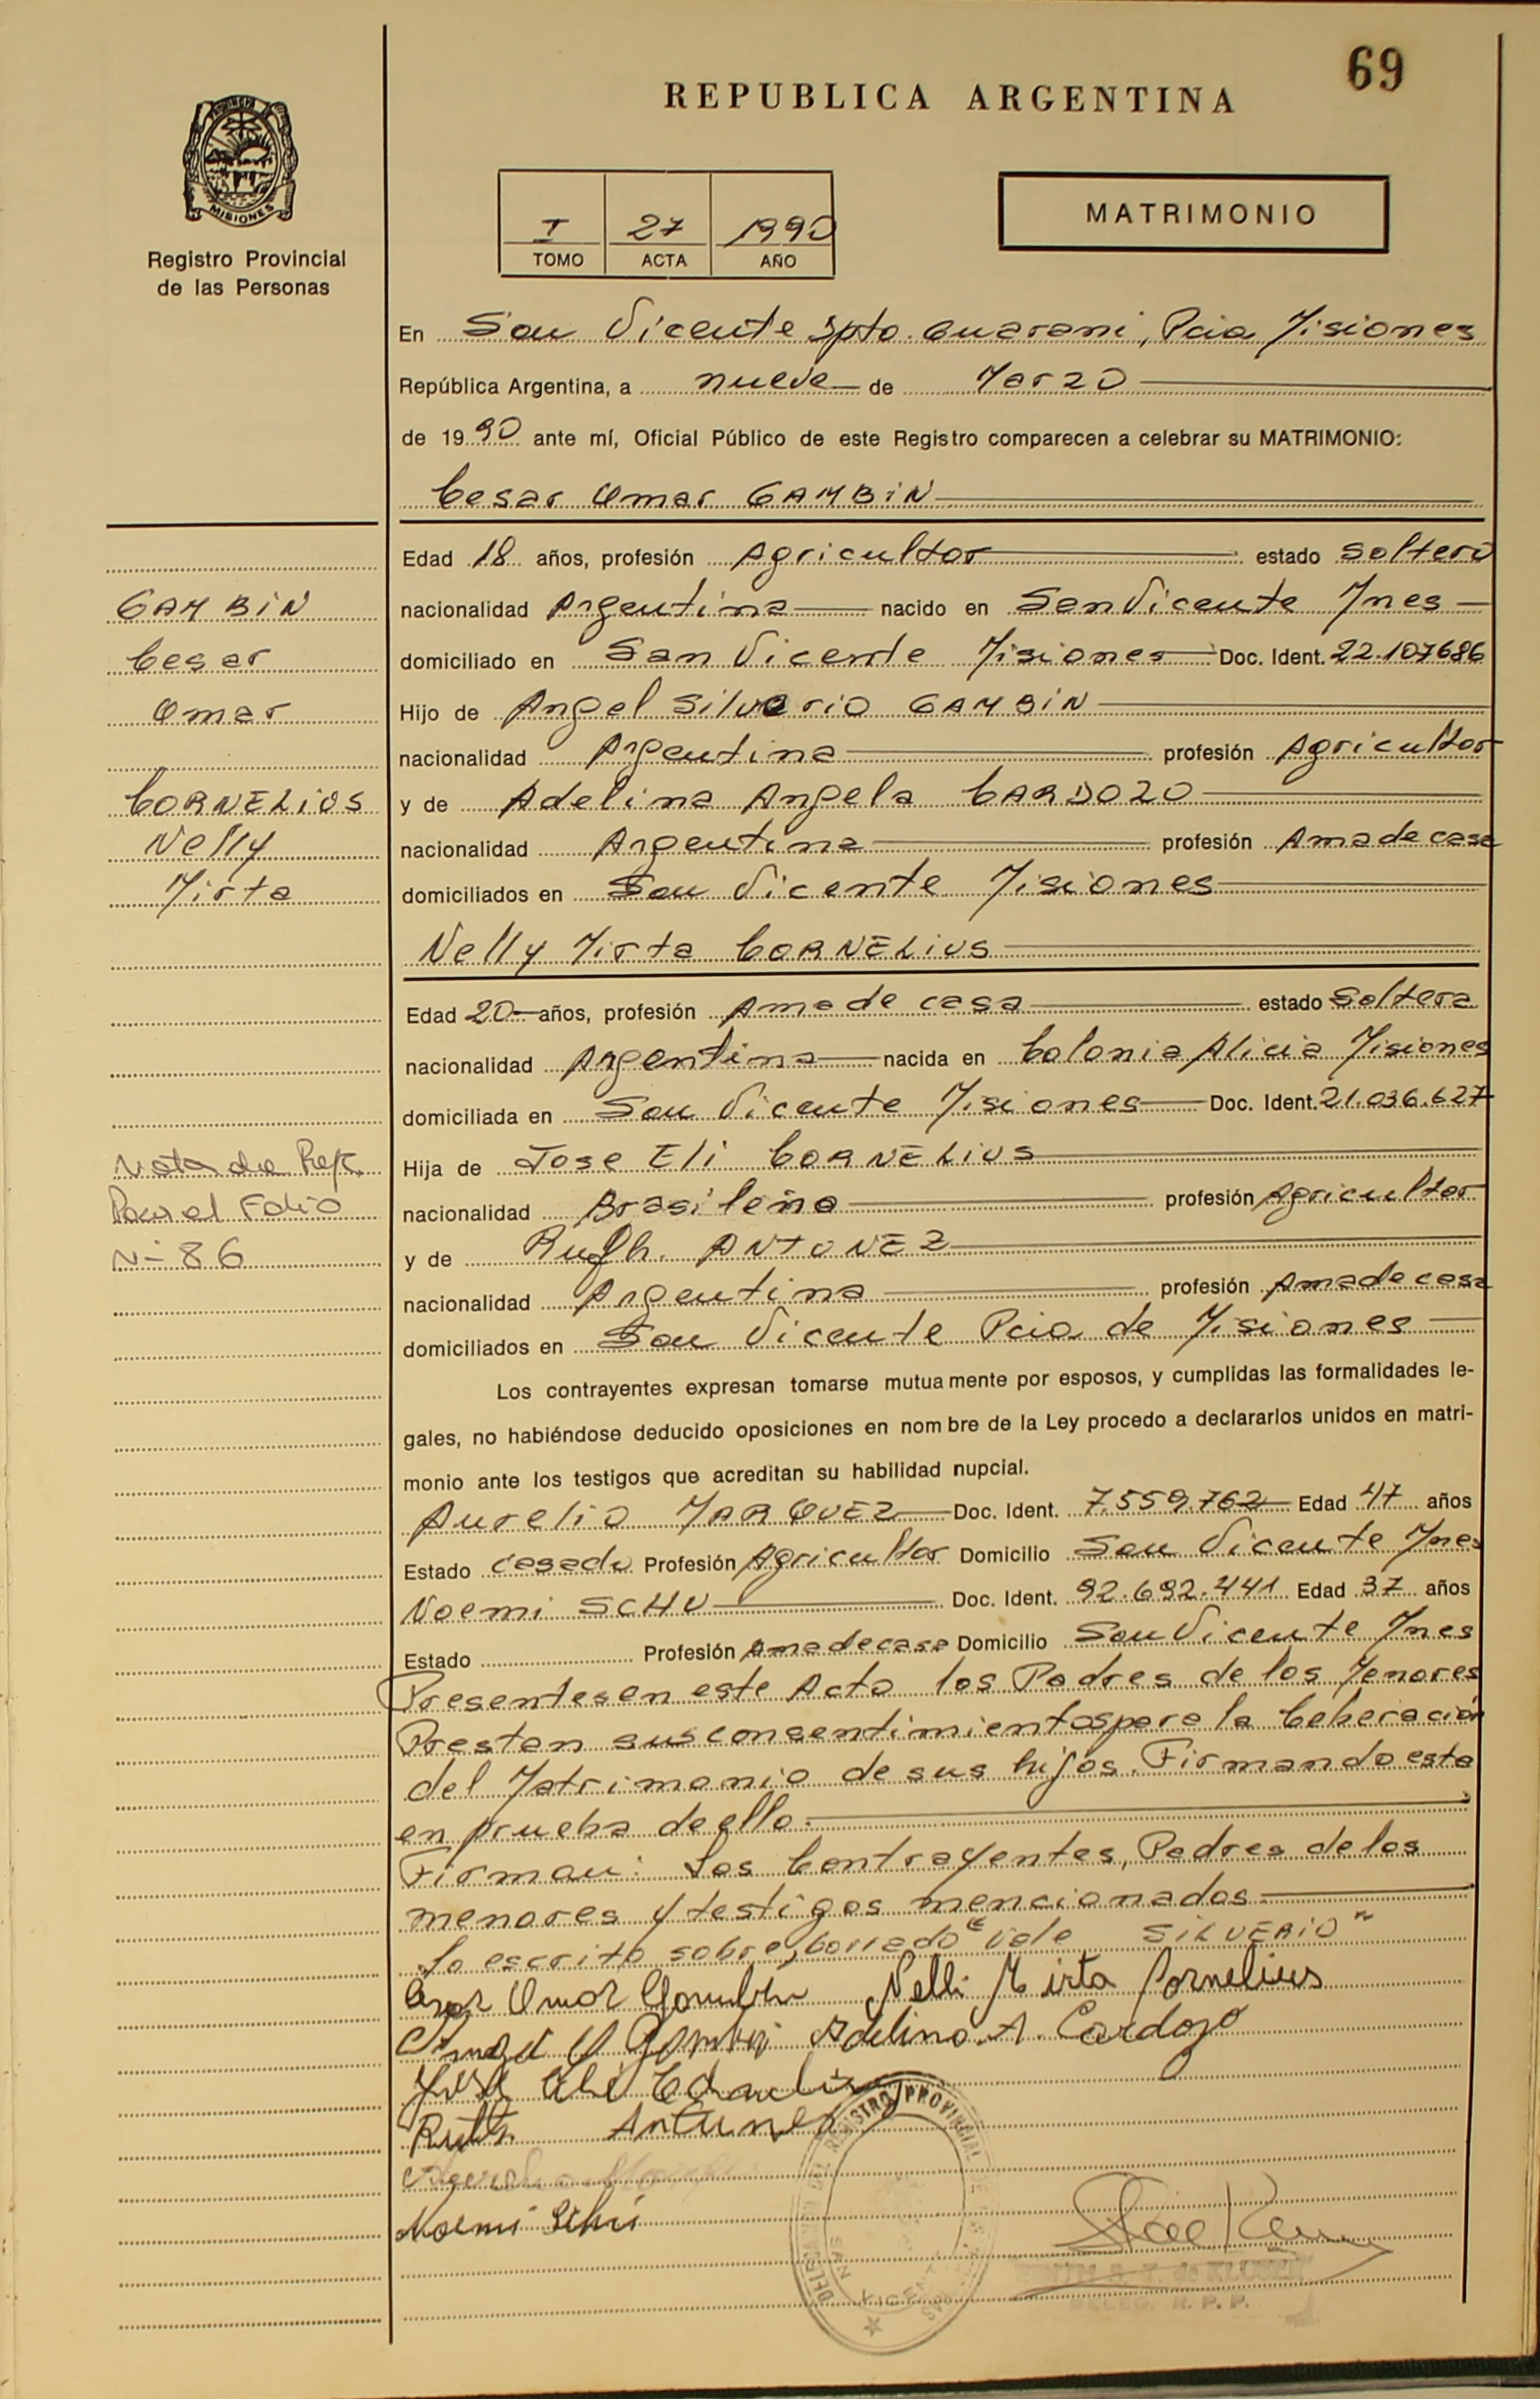 69
REPUBLICA ARGENTINA
MISIONES
Registro Provincial
de las Personas
I 27 1990
TOMO ACTA AÑO
MATRIMONIO
En San Vicente Dpto. Guarani, Pcia Misiones
República Argentina, a nueve de Marzo
de 1990 ante mí, Oficial Público de este Registro comparecen a celebrar su MATRIMONIO:
Cesar Omar GAMBIN
Edad 18 años, profesión Agricultor estado Soltero
GAMBIN
nacionalidad Argentina nacido en San Vicente Mnes
Cesar
domiciliado en San Vicente Misiones Doc. Ident. 22.107686
Omar
Hijo de Angel Silverio GAMBIN
nacionalidad Argentina profesión Agricultor
CORNELIUS
y de Adelina Angela CARDOZO
Nelly
nacionalidad Argentina profesión Ama de casa
Mirta
domiciliados en San Vicente Misiones
Nelly Mirta CORNELIUS
Edad 20 años, profesión Ama de casa estado Soltera
nacionalidad Argentina nacida en Colonia Alicia Misiones
domiciliada en San Vicente Misiones Doc. Ident. 21.036.627
Nota de Ref.
Hija de Jose Eli CORNELIUS
Pour el Folio
nacionalidad Brasileña profesión Agricultor
N- 86
y de ANTONEZ
nacionalidad Argentina profesión Ama de casa
domiciliados en San Vicente Pcia de Misiones
Los contrayentes expresan tomarse mutuamente por esposos, y cumplidas las formalidades le-
gales, no habiéndose deducido oposiciones en nombre de la Ley procedo a declararlos unidos en matri-
monio ante los testigos que acreditan su habilidad nupcial.
Aurelio MARQUEZ Doc. Ident. 7.559.762 Edad 47 años
Estado casado Profesión Agricultor Domicilio San Vicente Mnes
Noemi SCHU Doc. Ident. 92.692.441 Edad 37 años
Estado Profesión Ama de casa Domicilio San Vicente Mnes
Presentes en este Acto los Padres de los Menores
Prestan sus consentimientos para la Celebración
del Matrimonio de sus hijos. Firmando esta
en prueba de ello.
Firman: Los Contrayentes, Padres de los
menores y testigos mencionados
Lo escrito sobre borrado "Vale SILVERIO"
Cesar Omar Gambin Nelli Mirta Cornelius
Angel Gambin Adelina A. Cardozo
José Eli
Ruth Antunes
Noemi Schú
REGISTRO PROVINCIAL DE LAS
SAN VICENTE
DELEG. R. P. P.